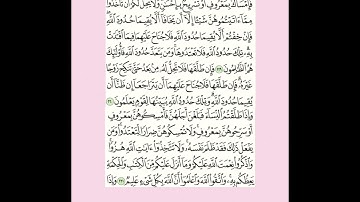 فَإِمْسَاكٌۢ بِمَعْرُوفٍ أَوْ تَسْرِيحٌۢ بِإِحْسَٰنٍ وَلَا يَحِلُّ لَكُمْ أَن تَأْخُذُوا۟
مِمَّآ ءَاتَيْتُمُوهُنَّ شَيْـًٔا إِلَّآ أَن يَخَافَآ أَلَّا يُقِيمَا حُدُودَ ٱللَّهِ
فَإِنْ خِفْتُمْ أَلَّا يُقِيمَا حُدُودَ ٱللَّهِ فَلَا جُنَاحَ عَلَيْهِمَا فِيمَا ٱفْتَدَتْ
بِهِۦ تِلْكَ حُدُودُ ٱللَّهِ فَلَا تَعْتَدُوهَا وَمَن يَتَعَدَّ حُدُودَ ٱللَّهِ فَأُو۟لَٰٓئِكَ
هُمُ ٱلظَّٰلِمُونَ ٢٢٩ فَإِن طَلَّقَهَا فَلَا تَحِلُّ لَهُۥ مِنۢ بَعْدُ حَتَّىٰ تَنكِحَ زَوْجًا
غَيْرَهُۥ فَإِن طَلَّقَهَا فَلَا جُنَاحَ عَلَيْهِمَآ أَن يَتَرَاجَعَآ إِن ظَنَّآ أَن
يُقِيمَا حُدُودَ ٱللَّهِ وَتِلْكَ حُدُودُ ٱللَّهِ يُبَيِّنُهَا لِقَوْمٍ يَعْلَمُونَ ٢٣٠
وَإِذَا طَلَّقْتُمُ ٱلنِّسَآءَ فَبَلَغْنَ أَجَلَهُنَّ فَأَمْسِكُوهُنَّ بِمَعْرُوفٍ
أَوْ سَرِّحُوهُنَّ بِمَعْرُوفٍ وَلَا تُمْسِكُوهُنَّ ضِرَارًا لِّتَعْتَدُوا۟ وَمَن
يَفْعَلْ ذَٰلِكَ فَقَدْ ظَلَمَ نَفْسَهُۥ وَلَا تَتَّخِذُوٓا۟ ءَايَٰتِ ٱللَّهِ هُزُوًا
وَٱذْكُرُوا۟ نِعْمَتَ ٱللَّهِ عَلَيْكُمْ وَمَآ أَنزَلَ عَلَيْكُم مِّنَ ٱلْكِتَٰبِ وَٱلْحِكْمَةِ
يَعِظُكُم بِهِۦ وَٱتَّقُوا۟ ٱللَّهَ وَٱعْلَمُوٓا۟ أَنَّ ٱللَّهَ بِكُلِّ شَىْءٍ عَلِيمٌ ٢٣١ وَإِذَا